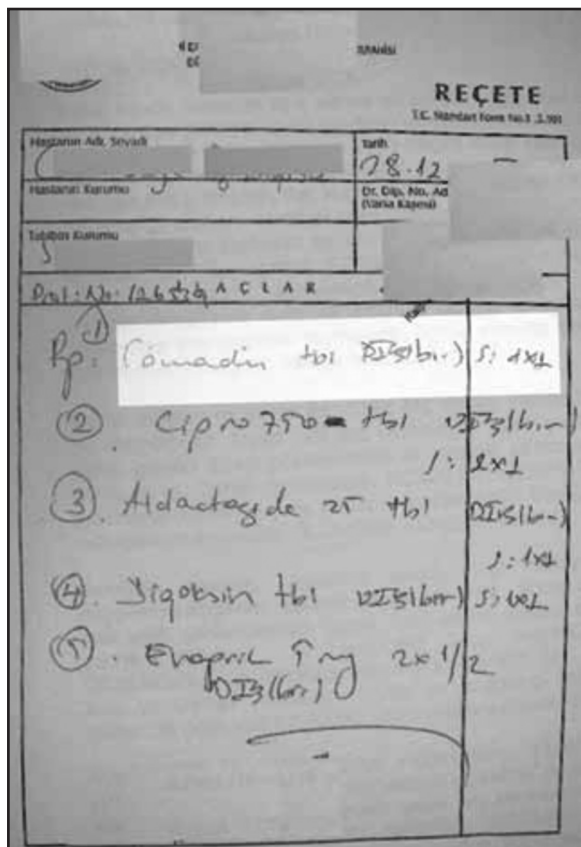 REÇETE
T.C. Standart Form No:1
Hastanın Adı, Soyadı
Tarih
28.12
Hastanın Kurumu
Dr. Dip. No, Ad
(Varsa Kaşesi)
Tabibin Kurumu
Prot. No:
① Rp: Coumadin tbl DIş(bir) S: 1x1
② Cipro 750 tbl DIş(bir)
S: 2x1
③ Aldactazide 25 tbl DIş(bir)
S: 1x1
④ Digoksin tbl DIş(bir) S: 1x1
⑤ Enapril 5 mg 2x1/2
DIş(bir)